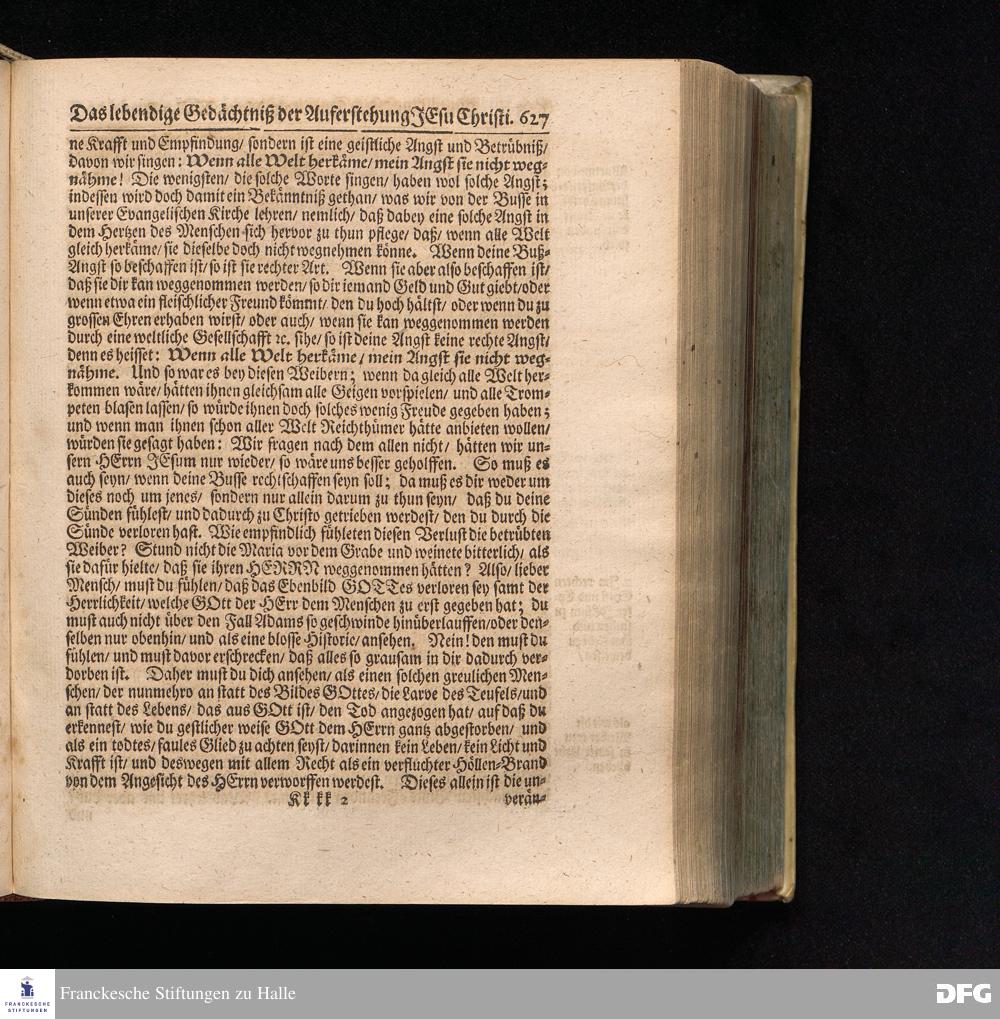 Das lebendige Gedächtniß der Auferstehung JEsu Christi. 627
ne Krafft und Empfindung/ sondern ist eine geistliche Angst und Betrübniß/
davon wir singen: Wenn alle Welt herkäme/ mein Angst sie nicht weg-
nähme! Die wenigsten/ die solche Worte singen/ haben wol solche Angst;
indessen wird doch damit ein Bekänntniß gethan/ was wir von der Busse in
unserer Evangelischen Kirche lehren/ nemlich/ daß dabey eine solche Angst in
dem Hertzen des Menschen sich hervor zu thun pflege/ daß/ wenn alle Welt
gleich herkäme/ sie dieselbe doch nicht wegnehmen könne. Wenn deine Buß-
Angst so beschaffen ist/ so ist sie rechter Art. Wenn sie aber also beschaffen ist/
daß sie dir kan weggenommen werden/ so dir iemand Geld und Gut giebt/ oder
wenn etwa ein fleischlicher Freund kömmt/ den du hoch hältst/ oder wenn du zu
grossen Ehren erhaben wirst/ oder auch/ wenn sie kan weggenommen werden
durch eine weltliche Gesellschafft ꝛc. sihe/ so ist deine Angst keine rechte Angst/
denn es heisset: Wenn alle Welt herkäme/ mein Angst sie nicht weg-
nähme. Und so war es bey diesen Weibern; wenn da gleich alle Welt her-
kommen wäre/ hätten ihnen gleichsam alle Geigen vorspielen/ und alle Trom-
peten blasen lassen/ so würde ihnen doch solches wenig Freude gegeben haben;
und wenn man ihnen schon aller Welt Reichthümer hätte anbieten wollen/
würden sie gesagt haben: Wir fragen nach dem allen nicht/ hätten wir un-
sern HErrn JEsum nur wieder/ so wäre uns besser geholffen. So muß es
auch seyn/ wenn deine Busse rechtschaffen seyn soll; da muß es dir weder um
dieses noch um jenes/ sondern nur allein darum zu thun seyn/ daß du deine
Sünden fühlest/ und dadurch zu Christo getrieben werdest/ den du durch die
Sünde verloren hast. Wie empfindlich fühleten diesen Verlust die betrübten
Weiber? Stund nicht die Maria vor dem Grabe und weinete bitterlich/ als
sie dafür hielte/ daß sie ihren HERRN weggenommen hätten? Also/ lieber
Mensch/ must du fühlen/ daß das Ebenbild GOTTes verloren sey samt der
Herrlichkeit/ welche GOtt der HErr dem Menschen zu erst gegeben hat; du
must auch nicht über den Fall Adams so geschwinde hinüberlauffen/ oder den-
selben nur obenhin/ und als eine blosse Historie/ ansehen. Nein! den must du
fühlen/ und must davor erschrecken/ daß alles so grausam in dir dadurch ver-
dorben ist. Daher must du dich ansehen/ als einen solchen greulichen Men-
schen/ der nunmehro an statt des Bildes GOttes/ die Larve des Teufels/ und
an statt des Lebens/ das aus GOtt ist/ den Tod angezogen hat/ auf daß du
erkennest/ wie du gestlicher weise GOtt dem HErrn gantz abgestorben/ und
als ein todtes/ faules Glied zu achten seyst/ darinnen kein Leben/ kein Licht und
Krafft ist/ und deswegen mit allem Recht als ein verfluchter Höllen-Brand
von dem Angesicht des HErrn verworffen werdest. Dieses allein ist die un-
Kk kk 2 verän-
FRANCKESCHE STIFTUNGEN
Franckesche Stiftungen zu Halle
DFG